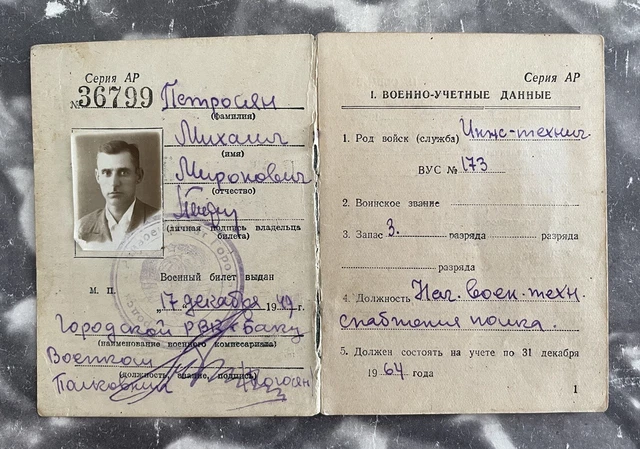 Серия АР
№36799
Петросян
(фамилия)
Михаил
(имя)
Миронович
(отчество)
(личная подпись владельца
билета)
М. П.
Военный билет выдан
„17" декабря 1949 г.
Городской РВК г Баку
(наименование военного комиссариата)
Военком
Полковник
(должность, звание, подпись)
Серия АР
I. ВОЕННО-УЧЕТНЫЕ ДАННЫЕ
1. Род войск (служба) Инж-технич.
ВУС № 173
2. Воинское звание
3. Запас 3. разряда разряда
разряда
4. Должность Нач. воен-техн.
снабжения полка.
5. Должен состоять на учете по 31 декабря
1964 года
1